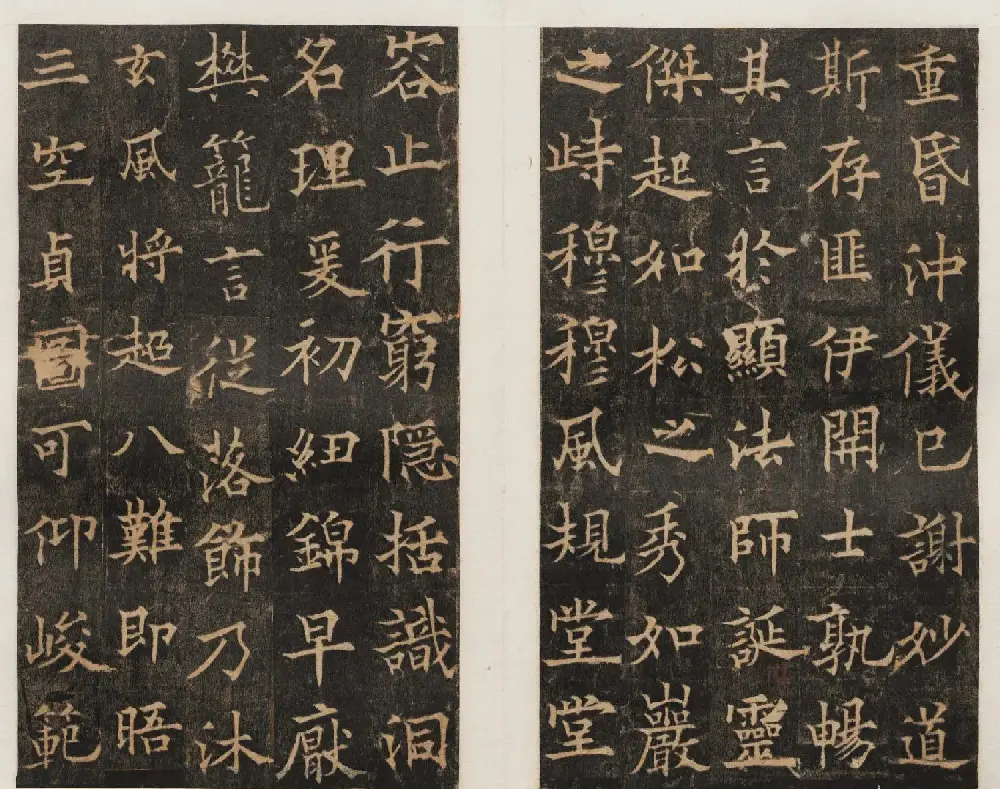 重昏沖儀已謝妙道
斯存匪伊開士孰暢
其言於顯法師誕靈
傑起如松之秀如巖
之峙穆〻穆〻風規堂堂
容止行窮隱括識洞
名理爰初紐錦早厭
樊籠言從落飾乃沐
玄風將超八難即晤
三空貞圖可仰峻範